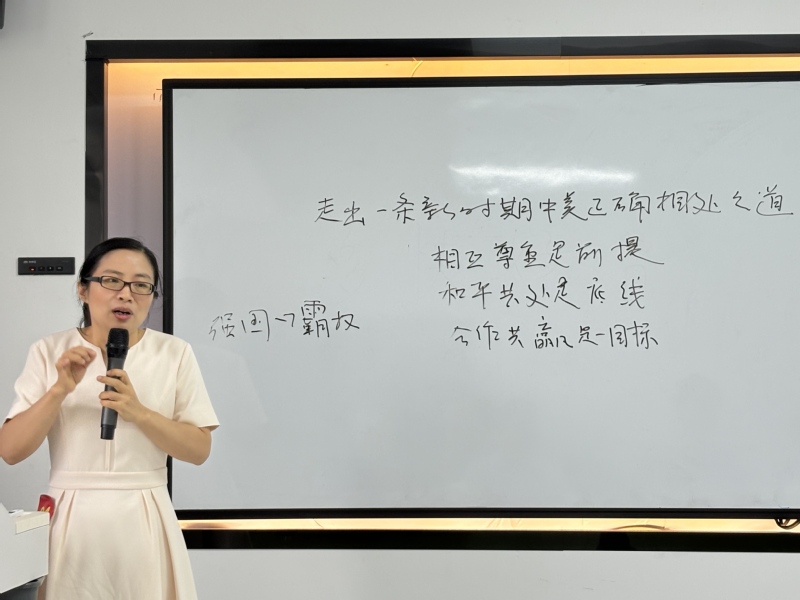 走出一条新时期中美正确相处之道
相互尊重是前提
和平共处是底线
合作共赢是目标
强国→霸权